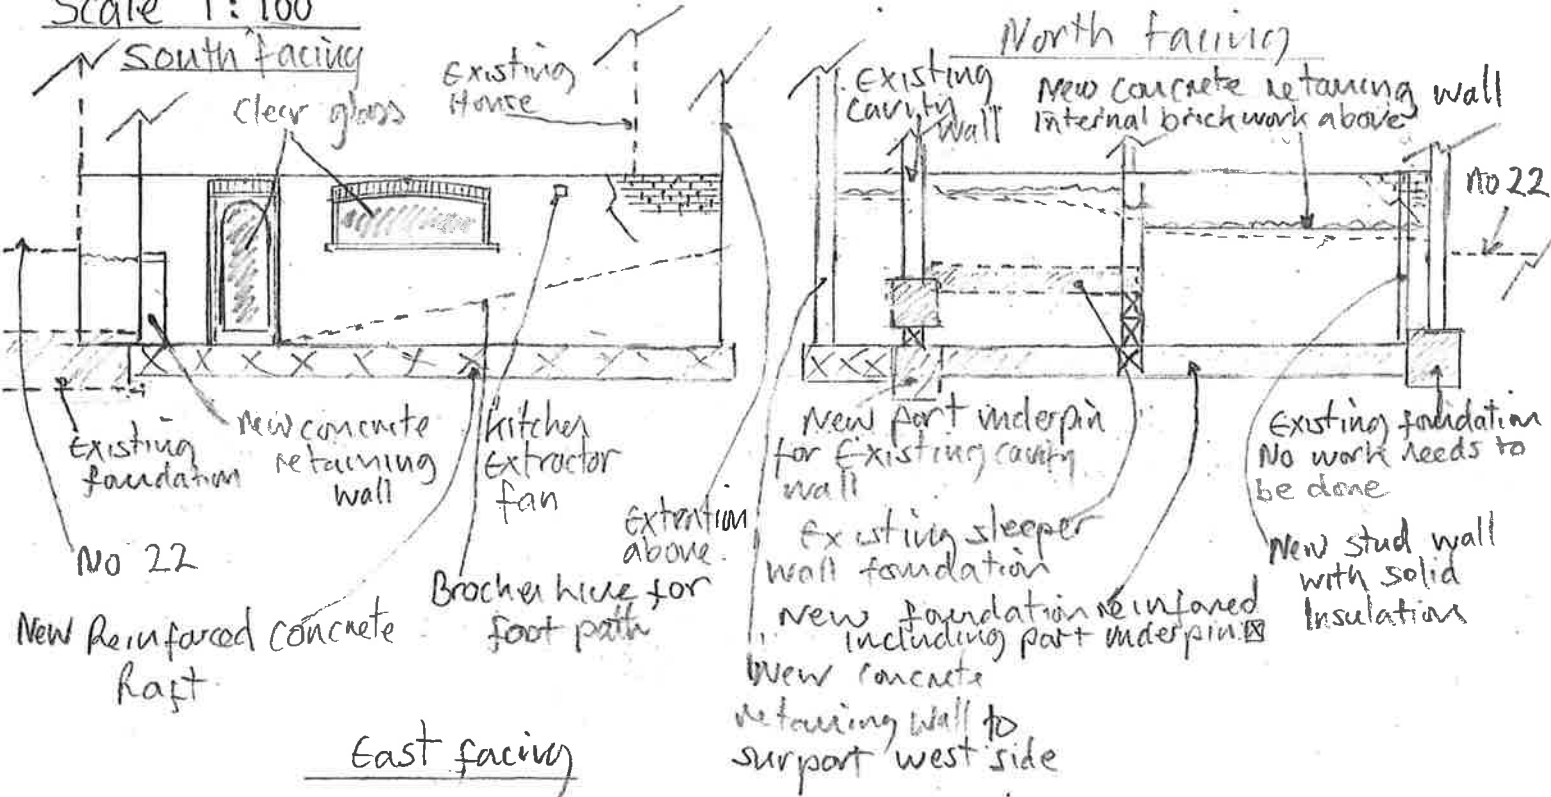 Scale 1:100
South facing
Clear glass
Existing
House
No 22
Existing
foundation
New concrete
retaining
wall
Kitchen
Extractor
fan
Extention
above
New Reinforced concrete
Raft
line for
foot path
North facing
Existing
cavity
wall
New concrete retaining wall
Internal brickwork above
No 22
New part underpin
for Existing cavity
wall
Existing sleeper
wall foundation
New foundation reinfored
including part underpin
New concrete
retaining wall to
surport west side
Existing foundation
No work needs to
be done
New stud wall
with solid
Insulation
East facing